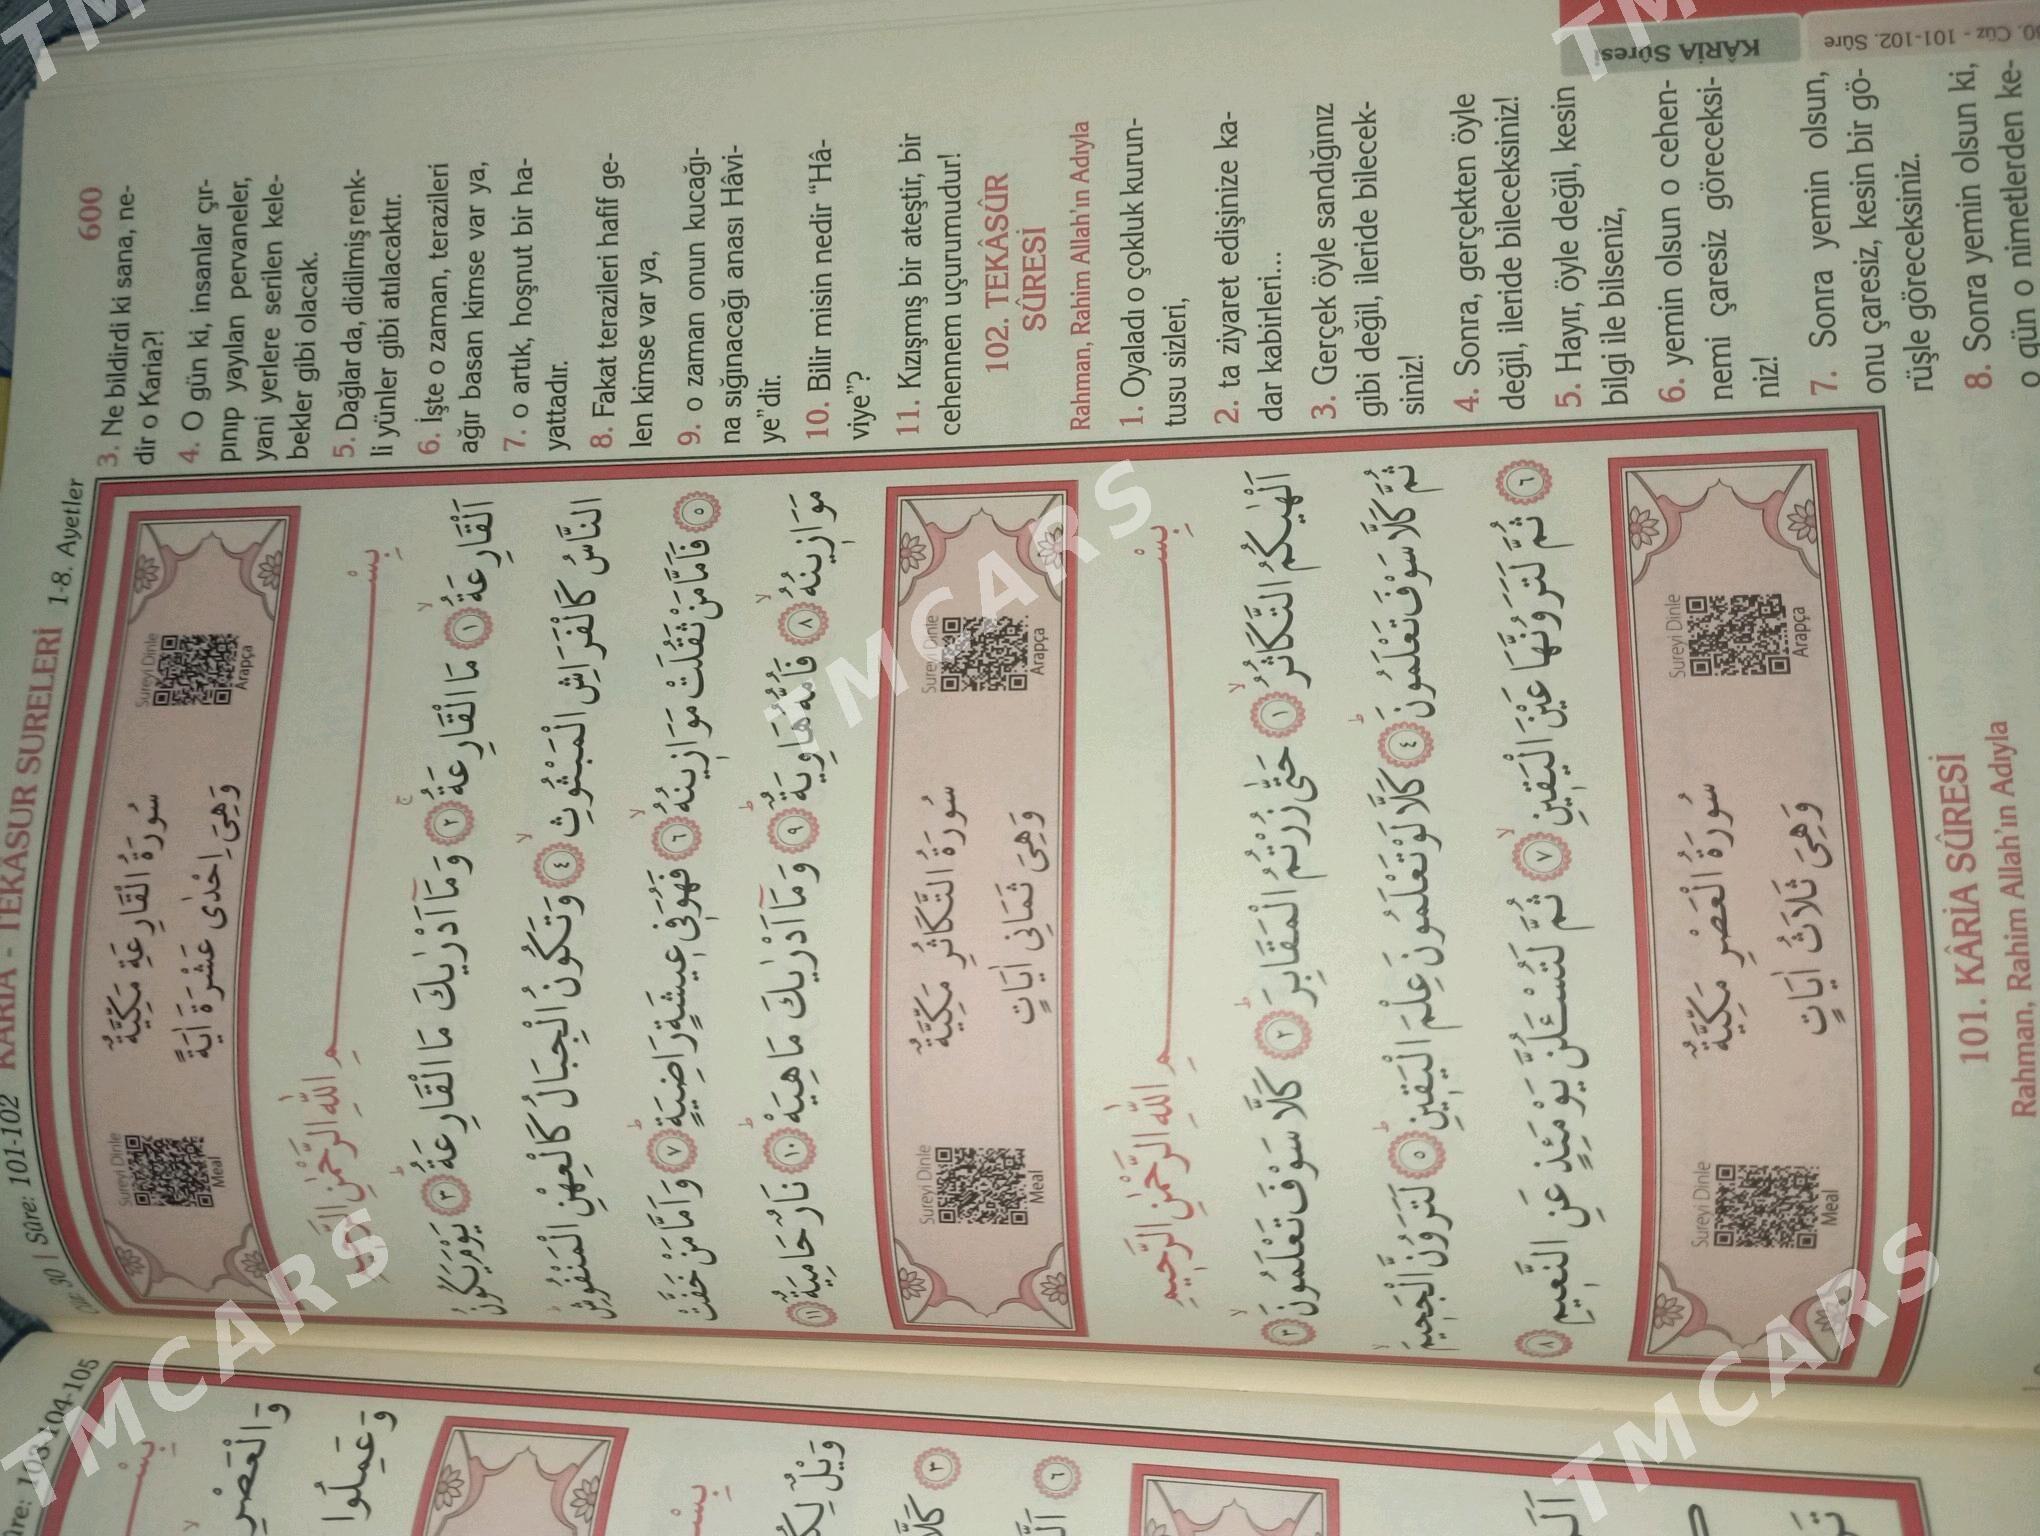 Cüz: 30 | Sûre: 101-102 KÂRİA - TEKÂSUR SURELERİ 1-8. Ayetler 600
Sureyi Dinle
Meal
سُورَةُ الْقَارِعَةِ مَكِّيَّةٌ
وَهِىَ اِحْدٰى عَشْرَةَ اٰيَةً
Sureyi Dinle
Arapça
بِسْمِ اللّٰهِ الرَّحْمٰنِ الرَّحِيمِ
اَلْقَارِعَةُ ﴿١﴾ مَا الْقَارِعَةُ ﴿٢﴾ وَمَٓا اَدْرٰيكَ مَا الْقَارِعَةُ ﴿٣﴾ يَوْمَ يَكُونُ
النَّاسُ كَالْفَرَاشِ الْمَبْثُوثِ ﴿٤﴾ وَتَكُونُ الْجِبَالُ كَالْعِهْنِ الْمَنْفُوشِ
﴿٥﴾ فَاَمَّا مَنْ ثَقُلَتْ مَوَازِينُهُ ﴿٦﴾ فَهُوَ فِى عِيشَةٍ رَاضِيَةٍ ﴿٧﴾ وَاَمَّا مَنْ خَفَّتْ
مَوَازِينُهُ ﴿٨﴾ فَاُمُّهُ هَاوِيَةٌ ﴿٩﴾ وَمَٓا اَدْرٰيكَ مَا هِيَهْ ﴿١٠﴾ نَارٌ حَامِيَةٌ ﴿١١﴾
Sureyi Dinle
Meal
سُورَةُ التَّكَاثُرِ مَكِّيَّةٌ
وَهِىَ ثَمَانِى اٰيَاتٍ
Sureyi Dinle
Arapça
بِسْمِ اللّٰهِ الرَّحْمٰنِ الرَّحِيمِ
اَلْهٰيكُمُ التَّكَاثُرُ ﴿١﴾ حَتّٰى زُرْتُمُ الْمَقَابِرَ ﴿٢﴾ كَلَّا سَوْفَ تَعْلَمُونَ ﴿٣﴾
ثُمَّ كَلَّا سَوْفَ تَعْلَمُونَ ﴿٤﴾ كَلَّا لَوْ تَعْلَمُونَ عِلْمَ الْيَقِينِ ﴿٥﴾ لَتَرَوُنَّ الْجَحِيمَ
﴿٦﴾ ثُمَّ لَتَرَوُنَّهَا عَيْنَ الْيَقِينِ ﴿٧﴾ ثُمَّ لَتُسْـَٔلُنَّ يَوْمَئِذٍ عَنِ النَّعِيمِ ﴿٨﴾
Sureyi Dinle
Meal
سُورَةُ الْعَصْرِ مَكِّيَّةٌ
وَهِىَ ثَلَاثُ اٰيَاتٍ
Sureyi Dinle
Arapça
101. KÂRİA SÛRESİ
Rahman, Rahim Allah'ın Adıyla
3. Ne bildirdi ki sana, ne-
dir o Karia?!
4. O gün ki, insanlar çır-
pınıp yayılan pervaneler,
yani yerlere serilen kele-
bekler gibi olacak.
5. Dağlar da, didilmiş renk-
li yünler gibi atılacaktır.
6. İşte o zaman, terazileri
ağır basan kimse var ya,
7. o artık, hoşnut bir ha-
yattadır.
8. Fakat terazileri hafif ge-
len kimse var ya,
9. o zaman onun kucağı-
na sığınacağı anası Hâvi-
ye"dir.
10. Bilir misin nedir "Hâ-
viye"?
11. Kızışmış bir ateştir, bir
cehennem uçurumudur!
102. TEKÂSÛR
SÛRESİ
Rahman, Rahim Allah'ın Adıyla
1. Oyaladı o çokluk kurun-
tusu sizleri,
2. ta ziyaret edişinize ka-
dar kabirleri...
3. Gerçek öyle sandığınız
gibi değil, ileride bilecek-
siniz!
4. Sonra, gerçekten öyle
değil, ileride bileceksiniz!
5. Hayır, öyle değil, kesin
bilgi ile bilseniz,
6. yemin olsun o cehen-
nemi çaresiz göreceksi-
niz!
7. Sonra yemin olsun,
onu çaresiz, kesin bir gö-
rüşle göreceksiniz.
8. Sonra yemin olsun ki,
o gün o nimetlerden ke-
KÂRİA Sûresi
30. Cüz - 101-102. Sûre
Sûre: 103-104-105
بِسْ
وَالْعَصْرِ
وَعَمِلُوا
بِسْ
وَيْلٌ لِكُ
كَلَّا ﴿٣﴾
﴿٦﴾
TMCARS
TMCARS
TMCARS
TMCARS
TMCARS